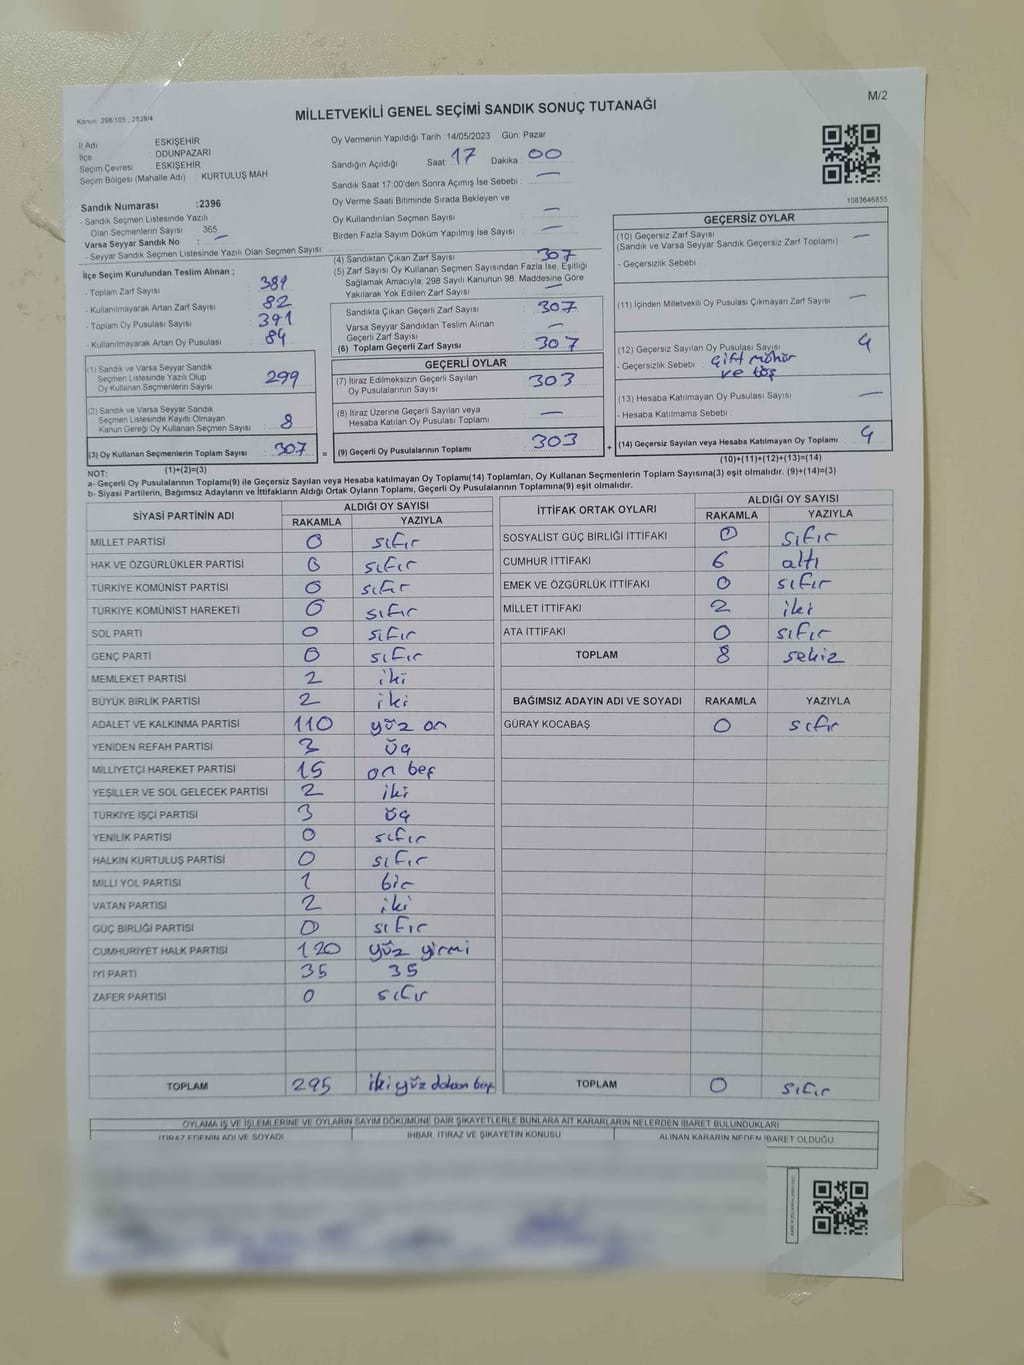 M/2
MİLLETVEKİLİ GENEL SEÇİMİ SANDIK SONUÇ TUTANAĞI
Kanun: 298/105 , 2839/4
İl Adı ESKİŞEHİR
İlçe ODUNPAZARI
Seçim Çevresi ESKİŞEHİR
Seçim Bölgesi (Mahalle Adı) KURTULUŞ MAH
Sandık Numarası :2396
- Sandık Seçmen Listesinde Yazılı
Olan Seçmenlerin Sayısı 365
Varsa Seyyar Sandık No : —
- Seyyar Sandık Seçmen Listesinde Yazılı Olan Seçmen Sayısı:
İlçe Seçim Kurulundan Teslim Alınan ;
- Toplam Zarf Sayısı 389
- Kullanılmayarak Artan Zarf Sayısı 82
- Toplam Oy Pusulası Sayısı 391
- Kullanılmayarak Artan Oy Pusulası 84
(1) Sandık ve Varsa Seyyar Sandık
Seçmen Listesinde Yazılı Olup
Oy Kullanan Seçmenlerin Sayısı 299
(2) Sandık ve Varsa Seyyar Sandık
Seçmen Listesinde Kayıtlı Olmayan
Kanun Gereği Oy Kullanan Seçmen Sayısı 8
(3) Oy Kullanan Seçmenlerin Toplam Sayısı 307 =
(1)+(2)=(3)
Oy Vermenin Yapıldığı Tarih :14/05/2023 Gün: Pazar
Sandığın Açıldığı Saat 17 Dakika 00
Sandık Saat 17:00'den Sonra Açımış İse Sebebi : —
Oy Verme Saati Bitiminde Sırada Bekleyen ve
Oy Kullandırılan Seçmen Sayısı —
Birden Fazla Sayım Döküm Yapılmış İse Sayısı —
(4) Sandıktan Çıkan Zarf Sayısı 307
(5) Zarf Sayısı Oy Kullanan Seçmen Sayısından Fazla İse, Eşitliği
Sağlamak Amacıyla; 298 Sayılı Kanunun 98. Maddesine Göre
Yakılarak Yok Edilen Zarf Sayısı —
Sandıkta Çıkan Geçerli Zarf Sayısı 307
Varsa Seyyar Sandıktan Teslim Alınan
Geçerli Zarf Sayısı —
(6) Toplam Geçerli Zarf Sayısı 307
GEÇERLİ OYLAR
(7) İtiraz Edilmeksizin Geçerli Sayılan
Oy Pusulalarının Sayısı 303
(8) İtiraz Üzerine Geçerli Sayılan veya
Hesaba Katılan Oy Pusulası Toplamı —
(9) Geçerli Oy Pusulalarının Toplamı 303 +
1083646855
GEÇERSİZ OYLAR
(10) Geçersiz Zarf Sayısı —
(Sandık ve Varsa Seyyar Sandık Geçersiz Zarf Toplamı)
- Geçersizlik Sebebi
(11) İçinden Milletvekili Oy Pusulası Çıkmayan Zarf Sayısı —
(12) Geçersiz Sayılan Oy Pusulası Sayısı 4
- Geçersizlik Sebebi Çift mühür
ve boş
(13) Hesaba Katılmayan Oy Pusulası Sayısı —
- Hesaba Katılmama Sebebi :
(14) Geçersiz Sayılan veya Hesaba Katılmayan Oy Toplamı 4
(10)+(11)+(12)+(13)=(14)
NOT:
a- Geçerli Oy Pusulalarının Toplamı(9) ile Geçersiz Sayılan veya Hesaba katılmayan Oy Toplamı(14) Toplamları, Oy Kullanan Seçmenlerin Toplam Sayısına(3) eşit olmalıdır. (9)+(14)=(3)
b- Siyasi Partilerin, Bağımsız Adayların ve İttifakların Aldığı Ortak Oyların Toplamı, Geçerli Oy Pusulalarının Toplamına(9) eşit olmalıdır.
SİYASİ PARTİNİN ADI ALDIĞI OY SAYISI
RAKAMLA YAZIYLA
MİLLET PARTİSİ 0 sıfır
HAK VE ÖZGÜRLÜKLER PARTİSİ 0 sıfır
TÜRKİYE KOMÜNİST PARTİSİ 0 sıfır
TÜRKİYE KOMÜNİST HAREKETİ 0 sıfır
SOL PARTİ 0 sıfır
GENÇ PARTİ 0 sıfır
MEMLEKET PARTİSİ 2 iki
BÜYÜK BİRLİK PARTİSİ 2 iki
ADALET VE KALKINMA PARTİSİ 110 yüz on
YENİDEN REFAH PARTİSİ 3 üç
MİLLİYETÇİ HAREKET PARTİSİ 15 on beş
YEŞİLLER VE SOL GELECEK PARTİSİ 2 iki
TÜRKİYE İŞÇİ PARTİSİ 3 üç
YENİLİK PARTİSİ 0 sıfır
HALKIN KURTULUŞ PARTİSİ 0 sıfır
MİLLİ YOL PARTİSİ 1 bir
VATAN PARTİSİ 2 iki
GÜÇ BİRLİĞİ PARTİSİ 0 sıfır
CUMHURİYET HALK PARTİSİ 120 yüz yirmi
İYİ PARTİ 35 35
ZAFER PARTİSİ 0 sıfır
TOPLAM 295 iki yüz doksan beş
İTTİFAK ORTAK OYLARI ALDIĞI OY SAYISI
RAKAMLA YAZIYLA
SOSYALİST GÜÇ BİRLİĞİ İTTİFAKI 0 sıfır
CUMHUR İTTİFAKI 6 altı
EMEK VE ÖZGÜRLÜK İTTİFAKI 0 sıfır
MİLLET İTTİFAKI 2 iki
ATA İTTİFAKI 0 sıfır
TOPLAM 8 sekiz
BAĞIMSIZ ADAYIN ADI VE SOYADI RAKAMLA YAZIYLA
GÜRAY KOCABAŞ 0 sıfır
TOPLAM 0 sıfır
OYLAMA İŞ VE İŞLEMLERİNE VE OYLARIN SAYIM DÖKÜMÜNE DAİR ŞİKAYETLERLE BUNLARA AİT KARARLARIN NELERDEN İBARET BULUNDUKLARI
İTİRAZ EDENİN ADI VE SOYADI İHBAR, İTİRAZ VE ŞİKAYETİN KONUSU ALINAN KARARIN NEDEN İBARET OLDUĞU